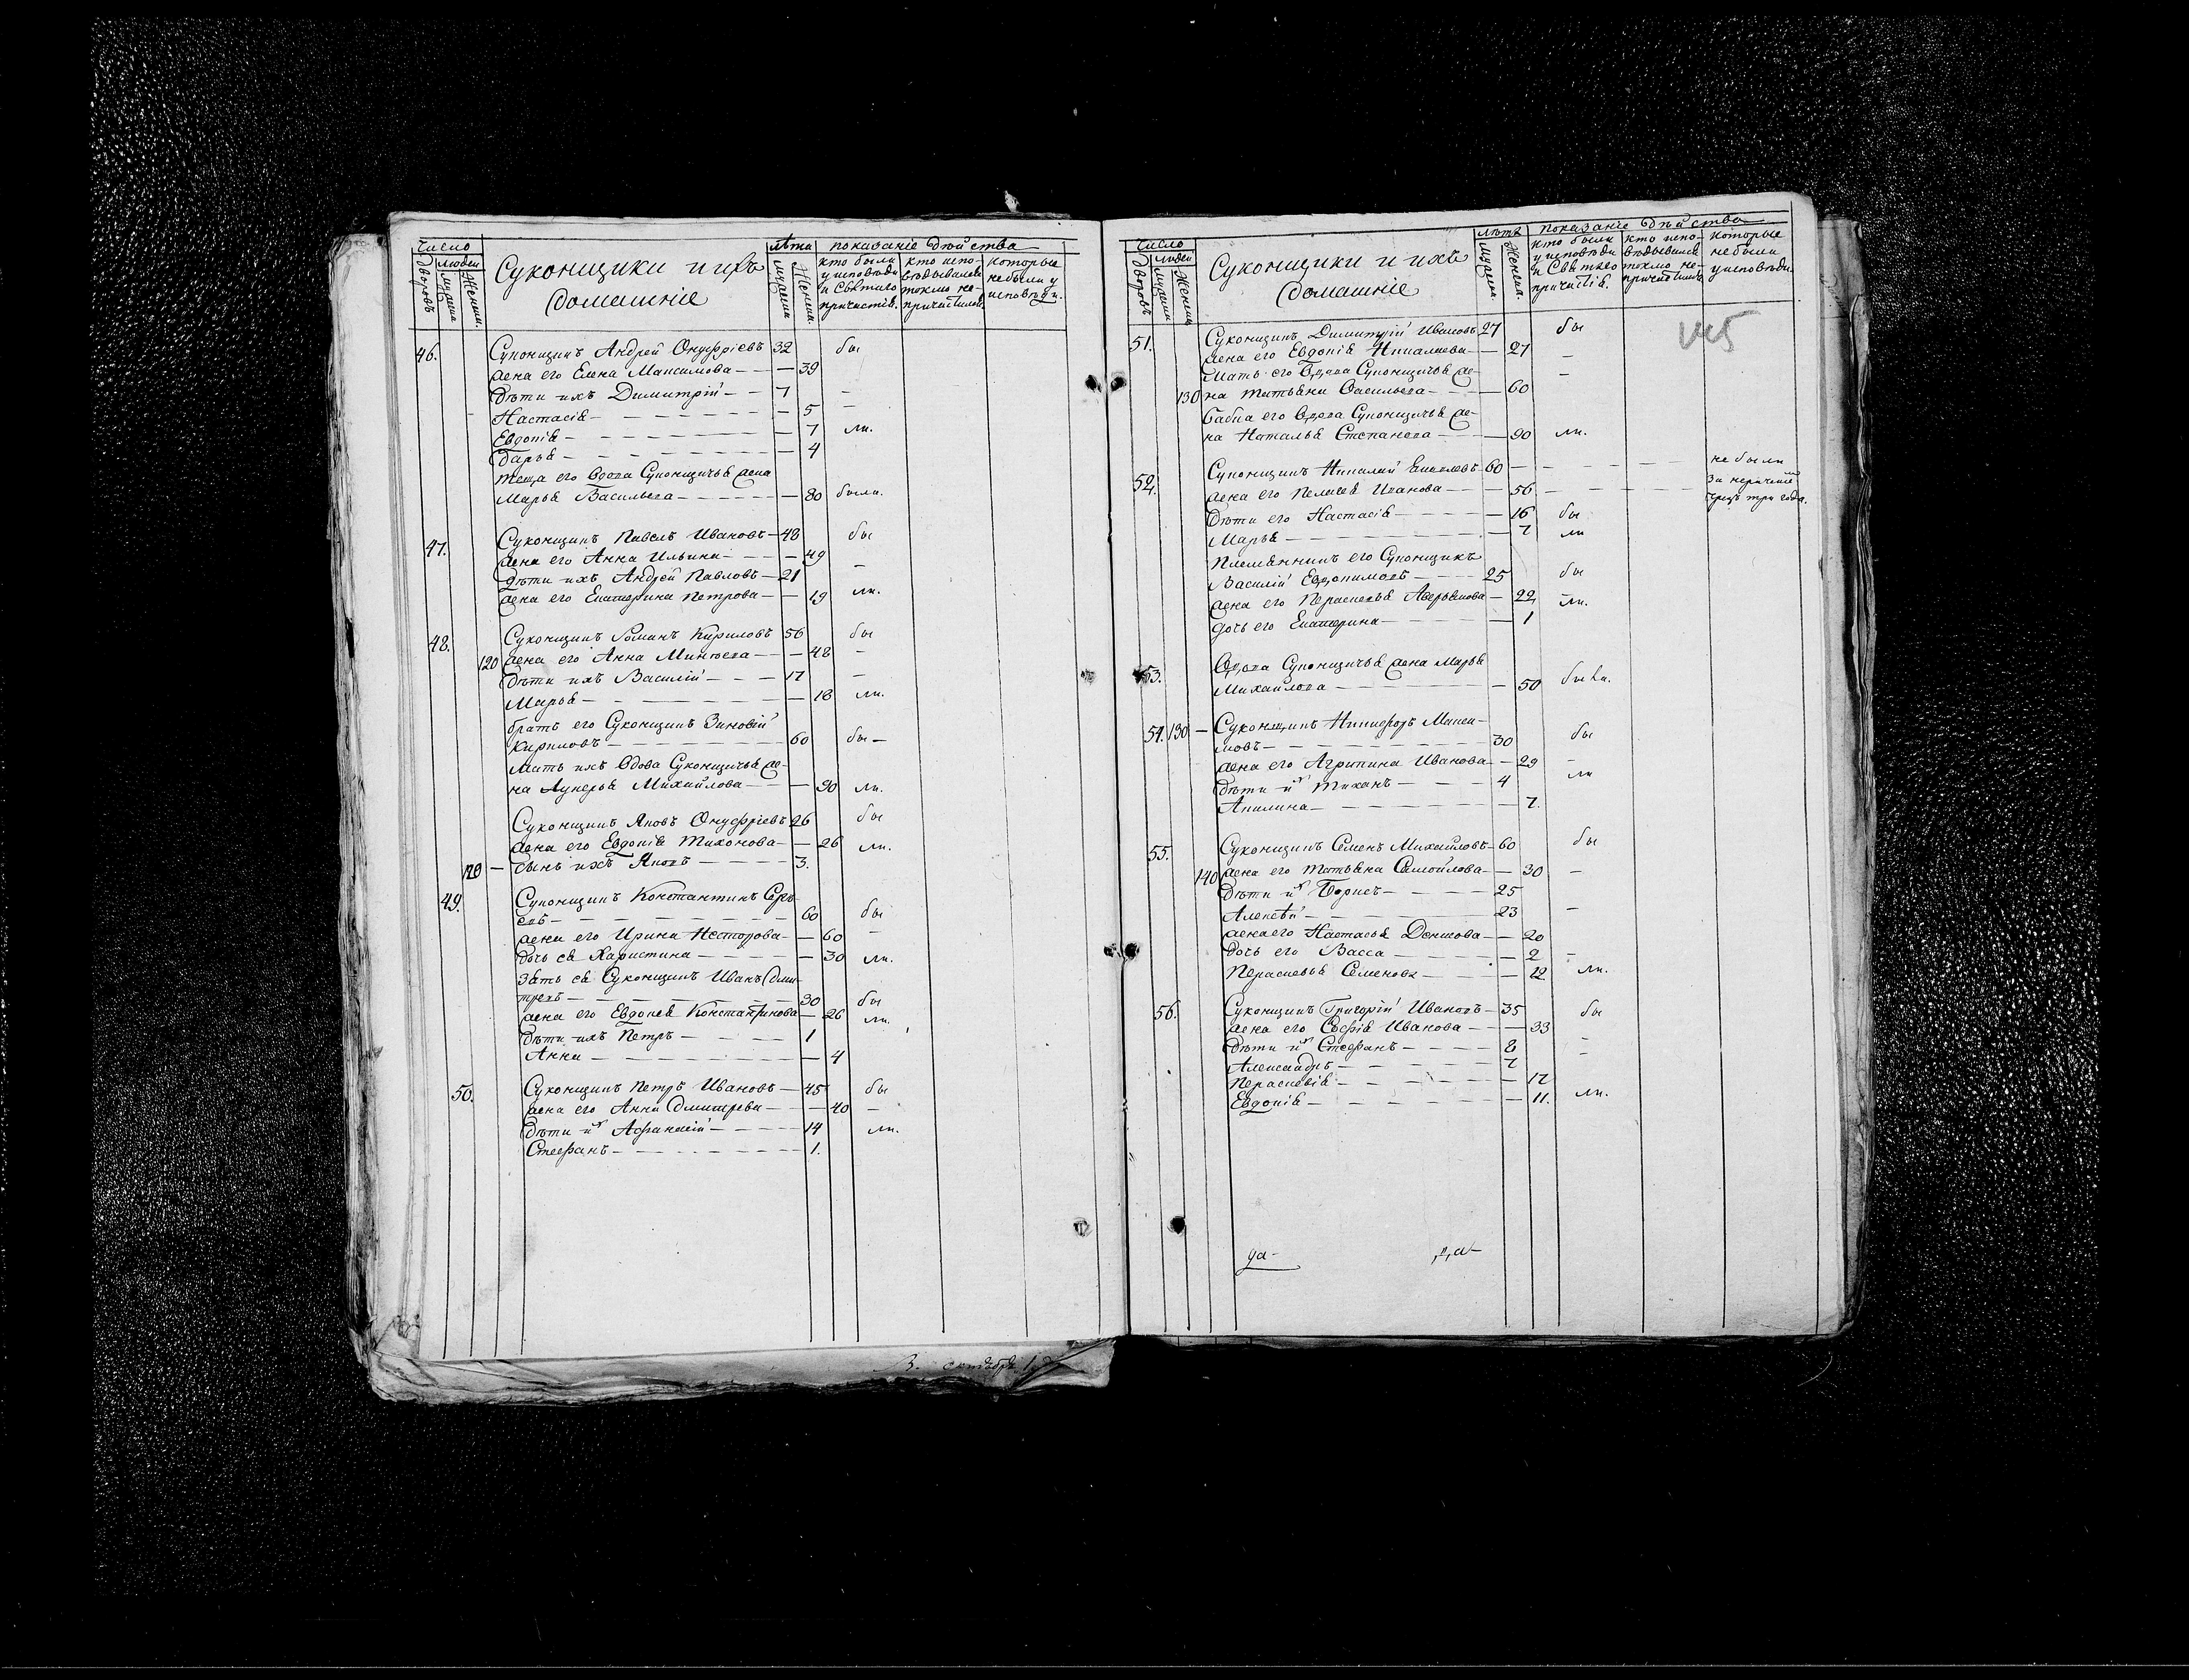 Число
Дворовъ
Людей
Мужеска
Женска.
Суконщики и ихъ
домашніе
лѣта
Мужеска
Женска.
показаніе дѣйства
кто были
у исповѣди
и Святаго
причастія.
кто испо-
вѣдывался
токмо не-
причастился.
которые
не были у
исповѣди.
46. Суконщикъ Андрей Онуфріевъ 32 бы
жена его Елена Максимова — — 39
дѣти ихъ Димитрій — — 7 —
Настасія — — 5 —
Евдокія — — 7 ли.
Дарья — — 4
теща его вдова Суконщичья жена
Марья Васильева — — 80 была.
47. Суконщикъ Павелъ Ивановъ — 48 бы
жена его Анна Ильина — — 49
дѣти ихъ Андрей Павловъ — 21 —
жена его Екатерина Петрова — — 19 ли.
48. Суконщикъ Романъ Кириловъ 56 бы
120 жена его Анна Минѣева — — 48 —
дѣти ихъ Василій — — 17 —
Марья — — 18 ли.
братъ его Суконщикъ Зиновій
Кириловъ — 60 бы —
мать ихъ вдова Суконщичья же-
на Лукерья Михайлова — — 90 ли.
Суконщикъ Яковъ Онуфріевъ 26 бы
жена его Евдокія Тихонова — — 26 ли.
120 — сынъ ихъ Яковъ — 3.
49. Суконщикъ Константинъ Сергѣ-
евъ — 60 бы
жена его Ирина Несторова — — 60 —
дочь ея Харистина — — 30 ли.
Зять ея Суконщикъ Иванъ Дми-
тревъ — 30 бы
жена его Евдокея Константинова — 26 ли.
дѣти ихъ Петръ — 1
Анна — — 4
50. Суконщикъ Петръ Ивановъ — 45 бы
жена его Анна Дмитрева — — 40 —
дѣти их Афанасій — 14 ли.
Стефанъ — 1.
Число
Дворовъ
людей
Мужеска
Женска
Суконщики и ихъ
домашніе
лѣтъ
Мужеска.
Женска.
показаніе дѣйства
кто были
у исповѣди
и Святаго
причастія.
кто испо-
вѣдывался
токмо не-
причастился.
которые
не были
у исповѣди.
51. Суконщикъ Димитрій Ивановъ 27 бы
жена его Евдокія Николаева — — 27 —
Мать его вдова Суконщичья же- —
130 на Татьяна Васильева — — 60
бабка его вдова Суконщичья же-
на Наталья Степанова — — 90 ли.
52. Суконщикъ Николай 60 — — — не были
жена его Пелагея Иванова — — 56 — — —
чрезъ три года.
дѣти его Настасія — — 16 бы
Марья — — 7 ли
Племянникъ его Суконщикъ
Василій Евдокимовъ — 25 бы
жена его Парасковья Аверьянова — 22 ли.
дочь его Екатерина — — 1
53. Вдова Суконщичья жена Марья
Михайлова — — 50 была.
54. 130 — Суконщикъ Никифоръ Макси-
мовъ — 30 бы
жена его Агрипина Иванова — — 29 —
дѣти их Тиханъ — 4 ли
Акилина — — 7.
55. Суконщикъ Семенъ Михайловъ — 60 бы
140 жена его Татьяна Самойлова — — 30 —
дѣти их Борисъ — 25
Алексѣй — 23 —
жена его Настасья Денисова — — 20
дочь его Васса — — 2 —
Парасковья Семенова — — 12 ли.
56. Суконщикъ Григорій Ивановъ — 35 бы
жена его Софія Иванова — — 33
дѣти их Стефанъ — 8 —
Александръ — 7 —
Параскевія — — 17
Евдокія — — 11. ли.